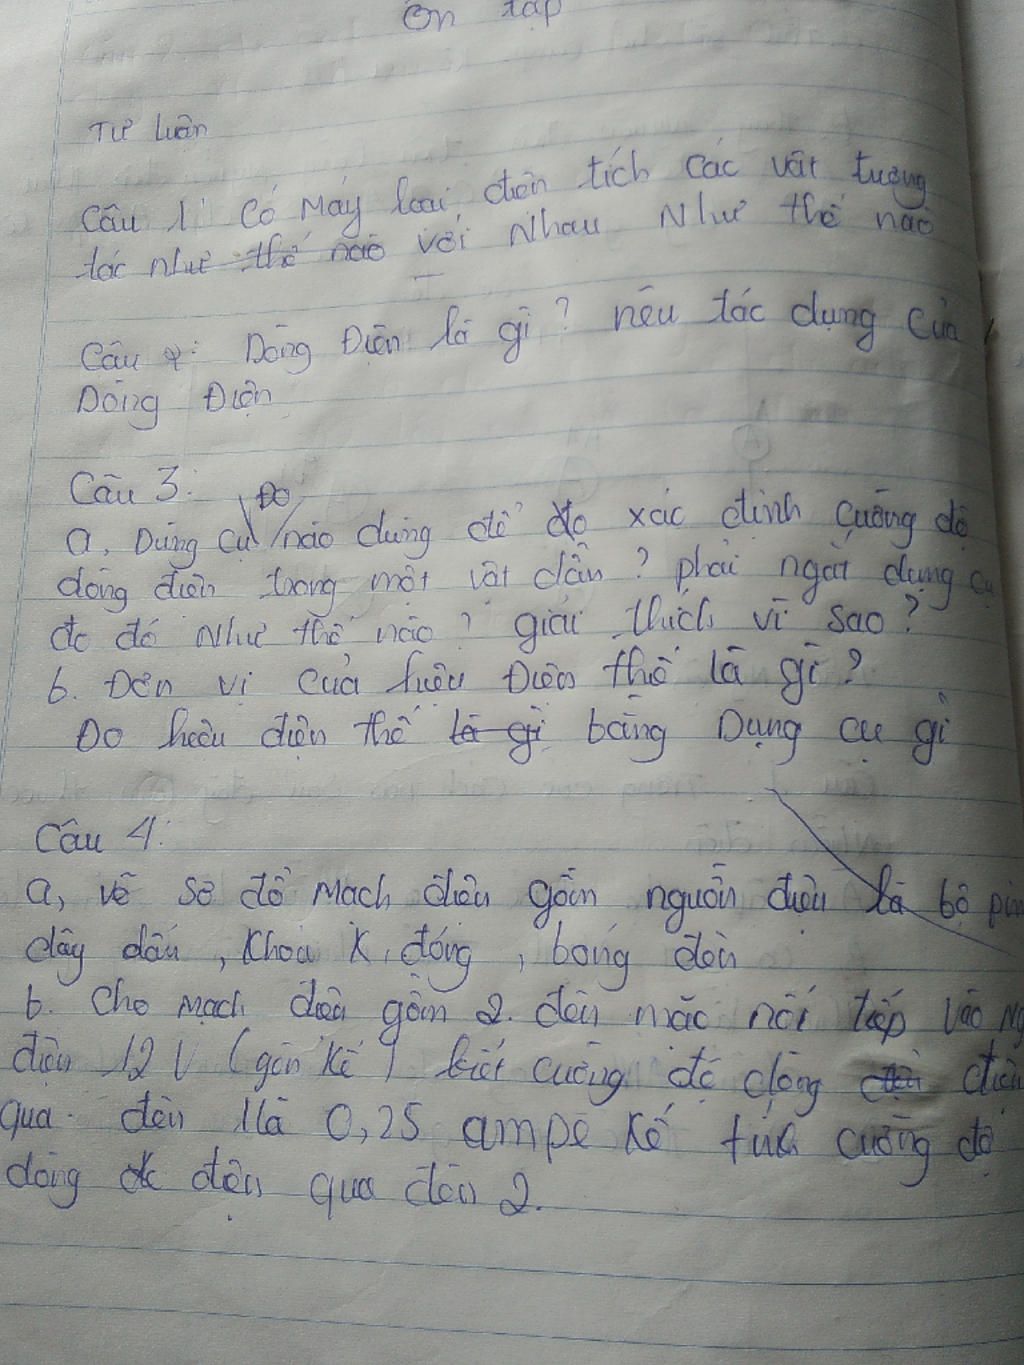 ôn tập
Tự luận
Câu 1: Có máy loại điện tích các vật tương
tác như thế nào với nhau như thế nào
Câu 2: Dòng Điện là gì? nêu tác dụng của
Dòng Điện
Câu 3:
Đo
a, Dùng cụ nào dùng để đo xác định cường độ
dòng điện trong một vật dẫn? phải ngắt dụng cụ
đo đó như thế nào? giải thích vì sao?
b. Đơn vị của hiệu Điện thế là gì?
Đo hiệu điện thế là gì bằng Dụng cụ gì
Câu 4:
a, vẽ sơ đồ mạch điện gồm nguồn điện là bộ pin
dây dẫn, khoá K, đóng, bóng đèn
b. Cho mạch điện gồm 2. đèn mắc nối tiếp vào
điện 12 V (gôn kế) biết cường độ dòng điện
qua đèn 1 là 0,25 ampe kế tính cường độ
dòng điện qua đèn 2.